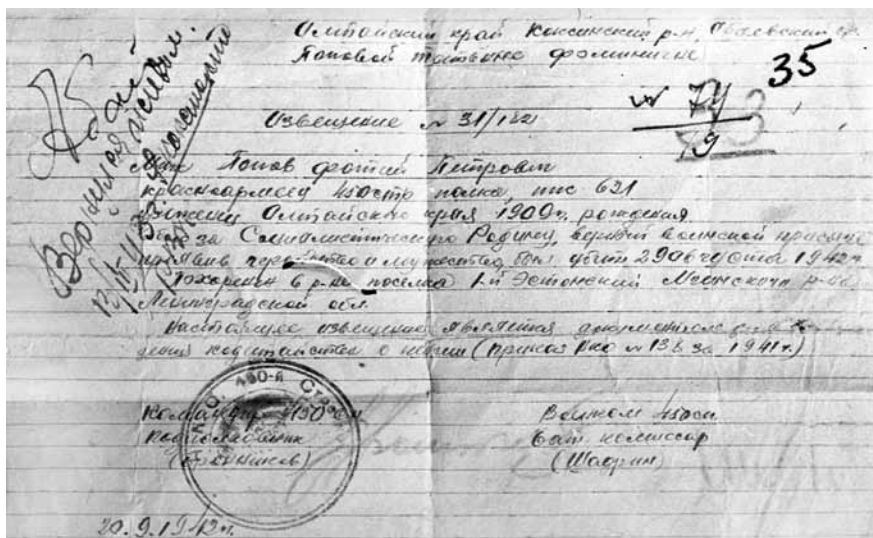 Алтайский край Коксинский р-н, Абаевский с/с
Поповой Татьяне Фоминичне
35
74
19
Извещение № 31/142
Муж Попов Фотий Петрович
красноармеец 450 стр полка, ппс 621
уроженец Алтайского края 1909 г. рождения
в бою за Социалистическую Родину, верный воинской присяге
проявив геройство и мужество, был убит 29 августа 1942 г.
Похоронен в р-не поселка 1-й Эстонский Мгинского р-на
Ленинградской обл.
Настоящее извещение является документом для
дения ходатайства о пенсии (приказ НКО № 138 1941 г.)
Командир 450 сп
подполковник
Военком 450 сп
Бат. комиссар
(Шадрин)
20.9.1942 г.
Абай
Вернулся живым.